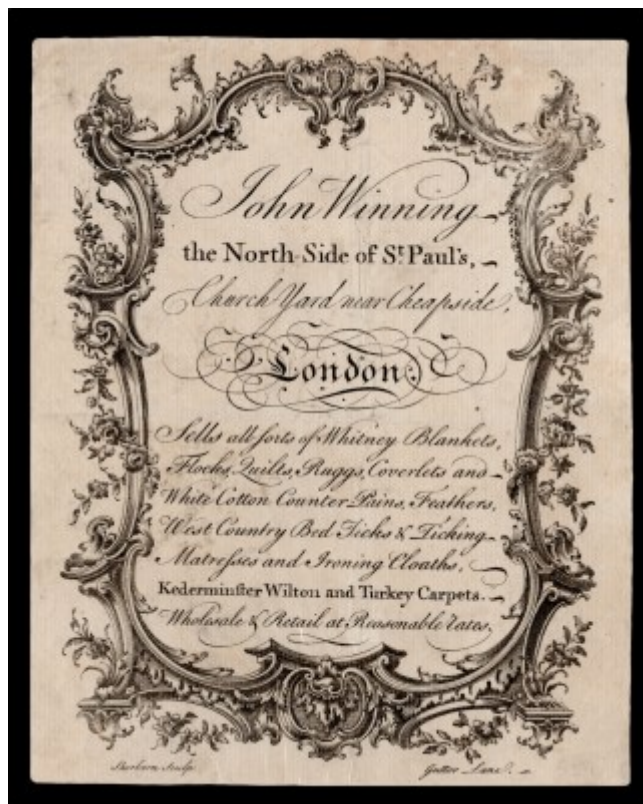 John Winning
the North Side of St. Paul's,
Church Yard near Cheapside,
London.
Sells all sorts of Whitney Blankets,
Flocks, Quilts, Ruggs, Coverlets and
White Cotton Counter-Pains, Feathers,
West Country Bed Ticks & Ticking
Matresses and Ironing Cloaths,
Kederminster Wilton and Turkey Carpets.
Wholesale & Retail at Reasonable rates.
Sherborn Sculp. Gutter Lane.